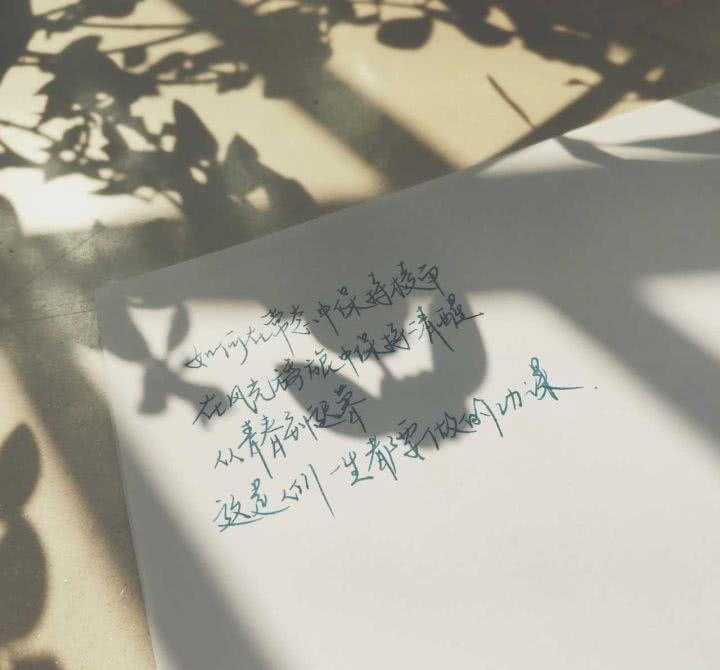 如何在常态中保持棱角
在风光旖旎中保持清醒
从青春到迟暮
这是人们一生都要做的功课.